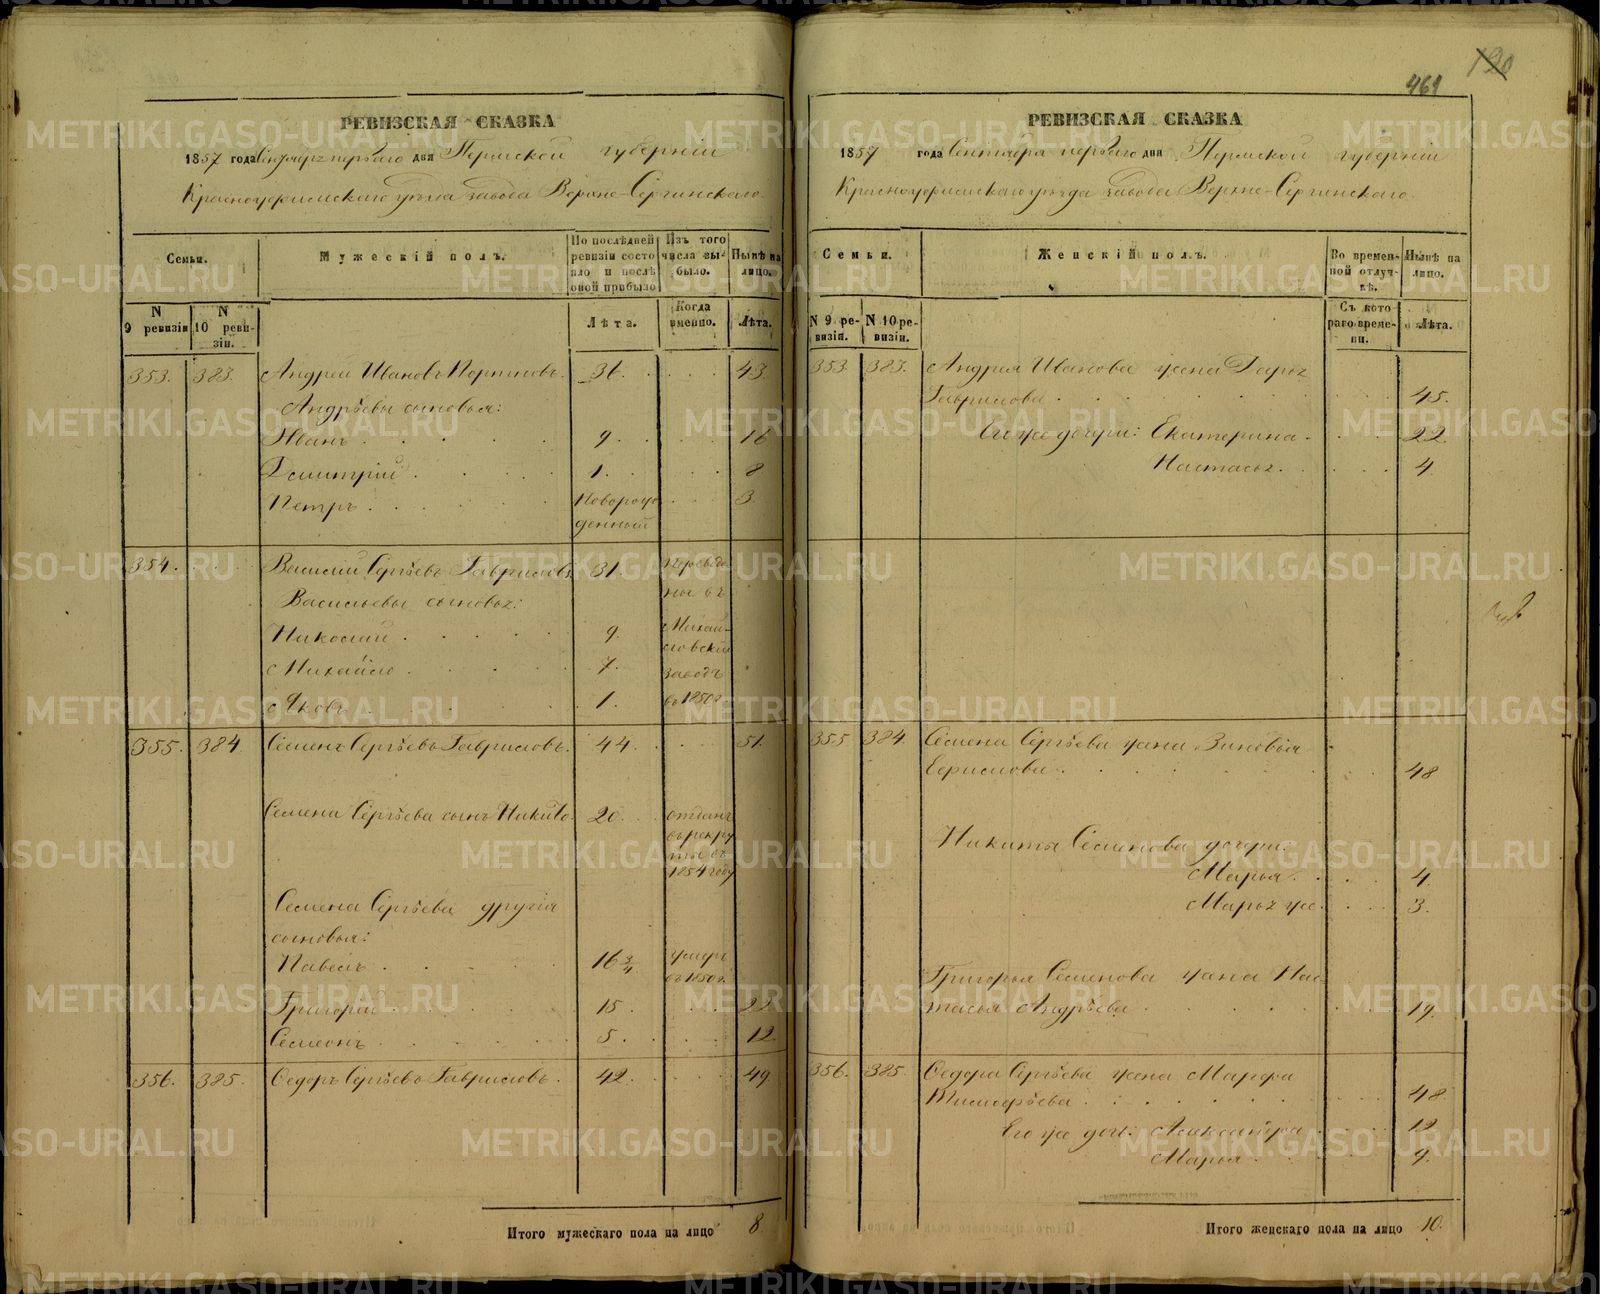 120
461
РЕВИЗСКАЯ СКАЗКА
1857 года Сентября перваго дня Пермской губерніи
Красноуфимскаго уѣзда завода Верхне-Сергинскаго.
Семьи.
Мужескій полъ.
По послѣдней ревизіи состояло и послѣ оной прибыло
Изъ того числа выбыло.
Нынѣ на лицо.
N 9 ревизіи
N 10 ревизіи.
Лѣта.
Когда именно.
Лѣта.
353. 383. Андрей Ивановъ 36. 43.
Андрѣевы сыновья:
Иванъ 9. 16
Дмитрій 1. 8
Петръ Новорожденный 3
354. Василій Сергѣевъ Гавриловъ 31. Переведены въ Михайловскій заводъ въ 1850 г.
Васильевы сыновья:
Николай 9.
Михайло 7.
Яковъ 1.
355. 384. Семенъ Сергѣевъ Гавриловъ. 44. 51.
Семена Сергѣева сынъ Никита 20. отданъ въ рекруты въ 1854 году
Семена Сергѣева другія
сыновья:
Павелъ 16 3/4 умеръ въ 1850 г.
Григорій 15. 22.
Семеонъ 5. 12.
356. 385. Ѳедоръ Сергѣевъ Гавриловъ. 42. 49.
Итого мужескаго пола на лицо 8.
РЕВИЗСКАЯ СКАЗКА
1857 года Сентября перваго дня Пермской губерніи
Красноуфимскаго уѣзда завода Верхне-Сергинскаго.
Семьи.
Женскій полъ.
Во временной отлучкѣ.
Нынѣ на лицо.
N 9 ревизіи.
N 10 ревизіи.
Съ котораго времени.
Лѣта.
353. 383. Андрея Иванова жена Дарья
Гаврилова 45.
Его же дочери: Екатерина 22.
Настасья 4
355 384. Семена Сергѣева жена Зиновья
48
Никиты Семенова дочери:
Марья 4.
Марья же 3.
Григорья Семенова жена Нас
тасья Андрѣева 19.
356. 385. Ѳедора Сергѣева жена Марфа
Тимофѣева 48.
Его же доч: Александра 12
Марья 9.
Итого женскаго пола на лицо 10.
METRIKI.GASO-URAL.RU